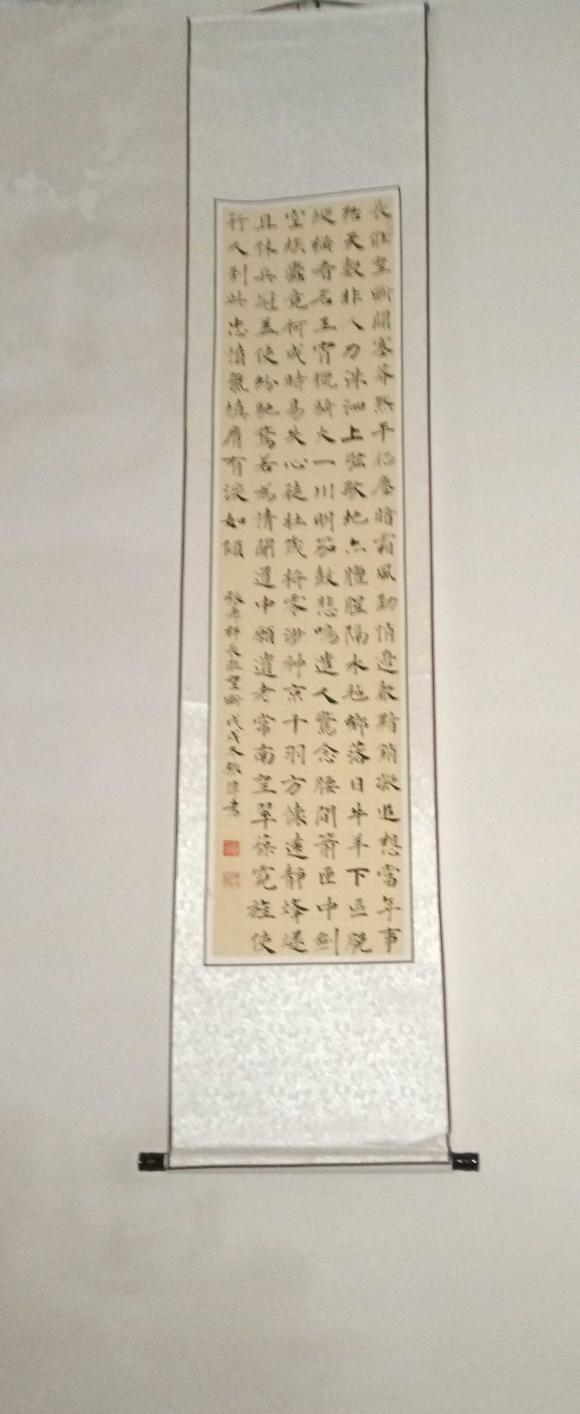 長淮望斷關塞莽然平征塵暗霜風勁悄邊聲黯銷凝追想當年事
殆天數非人力洙泗上弦歌地亦羶腥隔水氈鄉落日牛羊下區脫
縱橫看名王宵獵騎火一川明笳鼓悲鳴遣人驚念腰間箭匣中劍
空埃蠹竟何成時易失心徒壯歲將零渺神京干羽方懷遠靜烽燧
且休兵冠蓋使紛馳騖若為情聞道中願遺老常南望翠葆霓旌使
行人到此忠憤氣填膺有淚如傾
張孝祥長淮望斷戊戌冬書